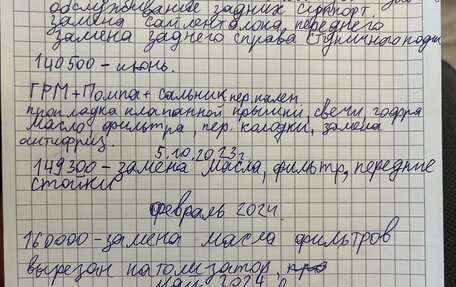 обслуживание задних суппорт.
замена сайлентблока переднего
замена заднего справа ступичного подш
140500 - июнь.
ГРМ + Помпа + сальник пер. колен
прокладка клапанной крышки, свечи, гофра
масло, фильтра, пер. колодки, замена
антифриз.
5.10.2023г.
149300 - замена масла, фильтр, передние
стойки
Февраль 2024.
160000 - замена масла фильтров
вырезан катализатор,
Май 2024